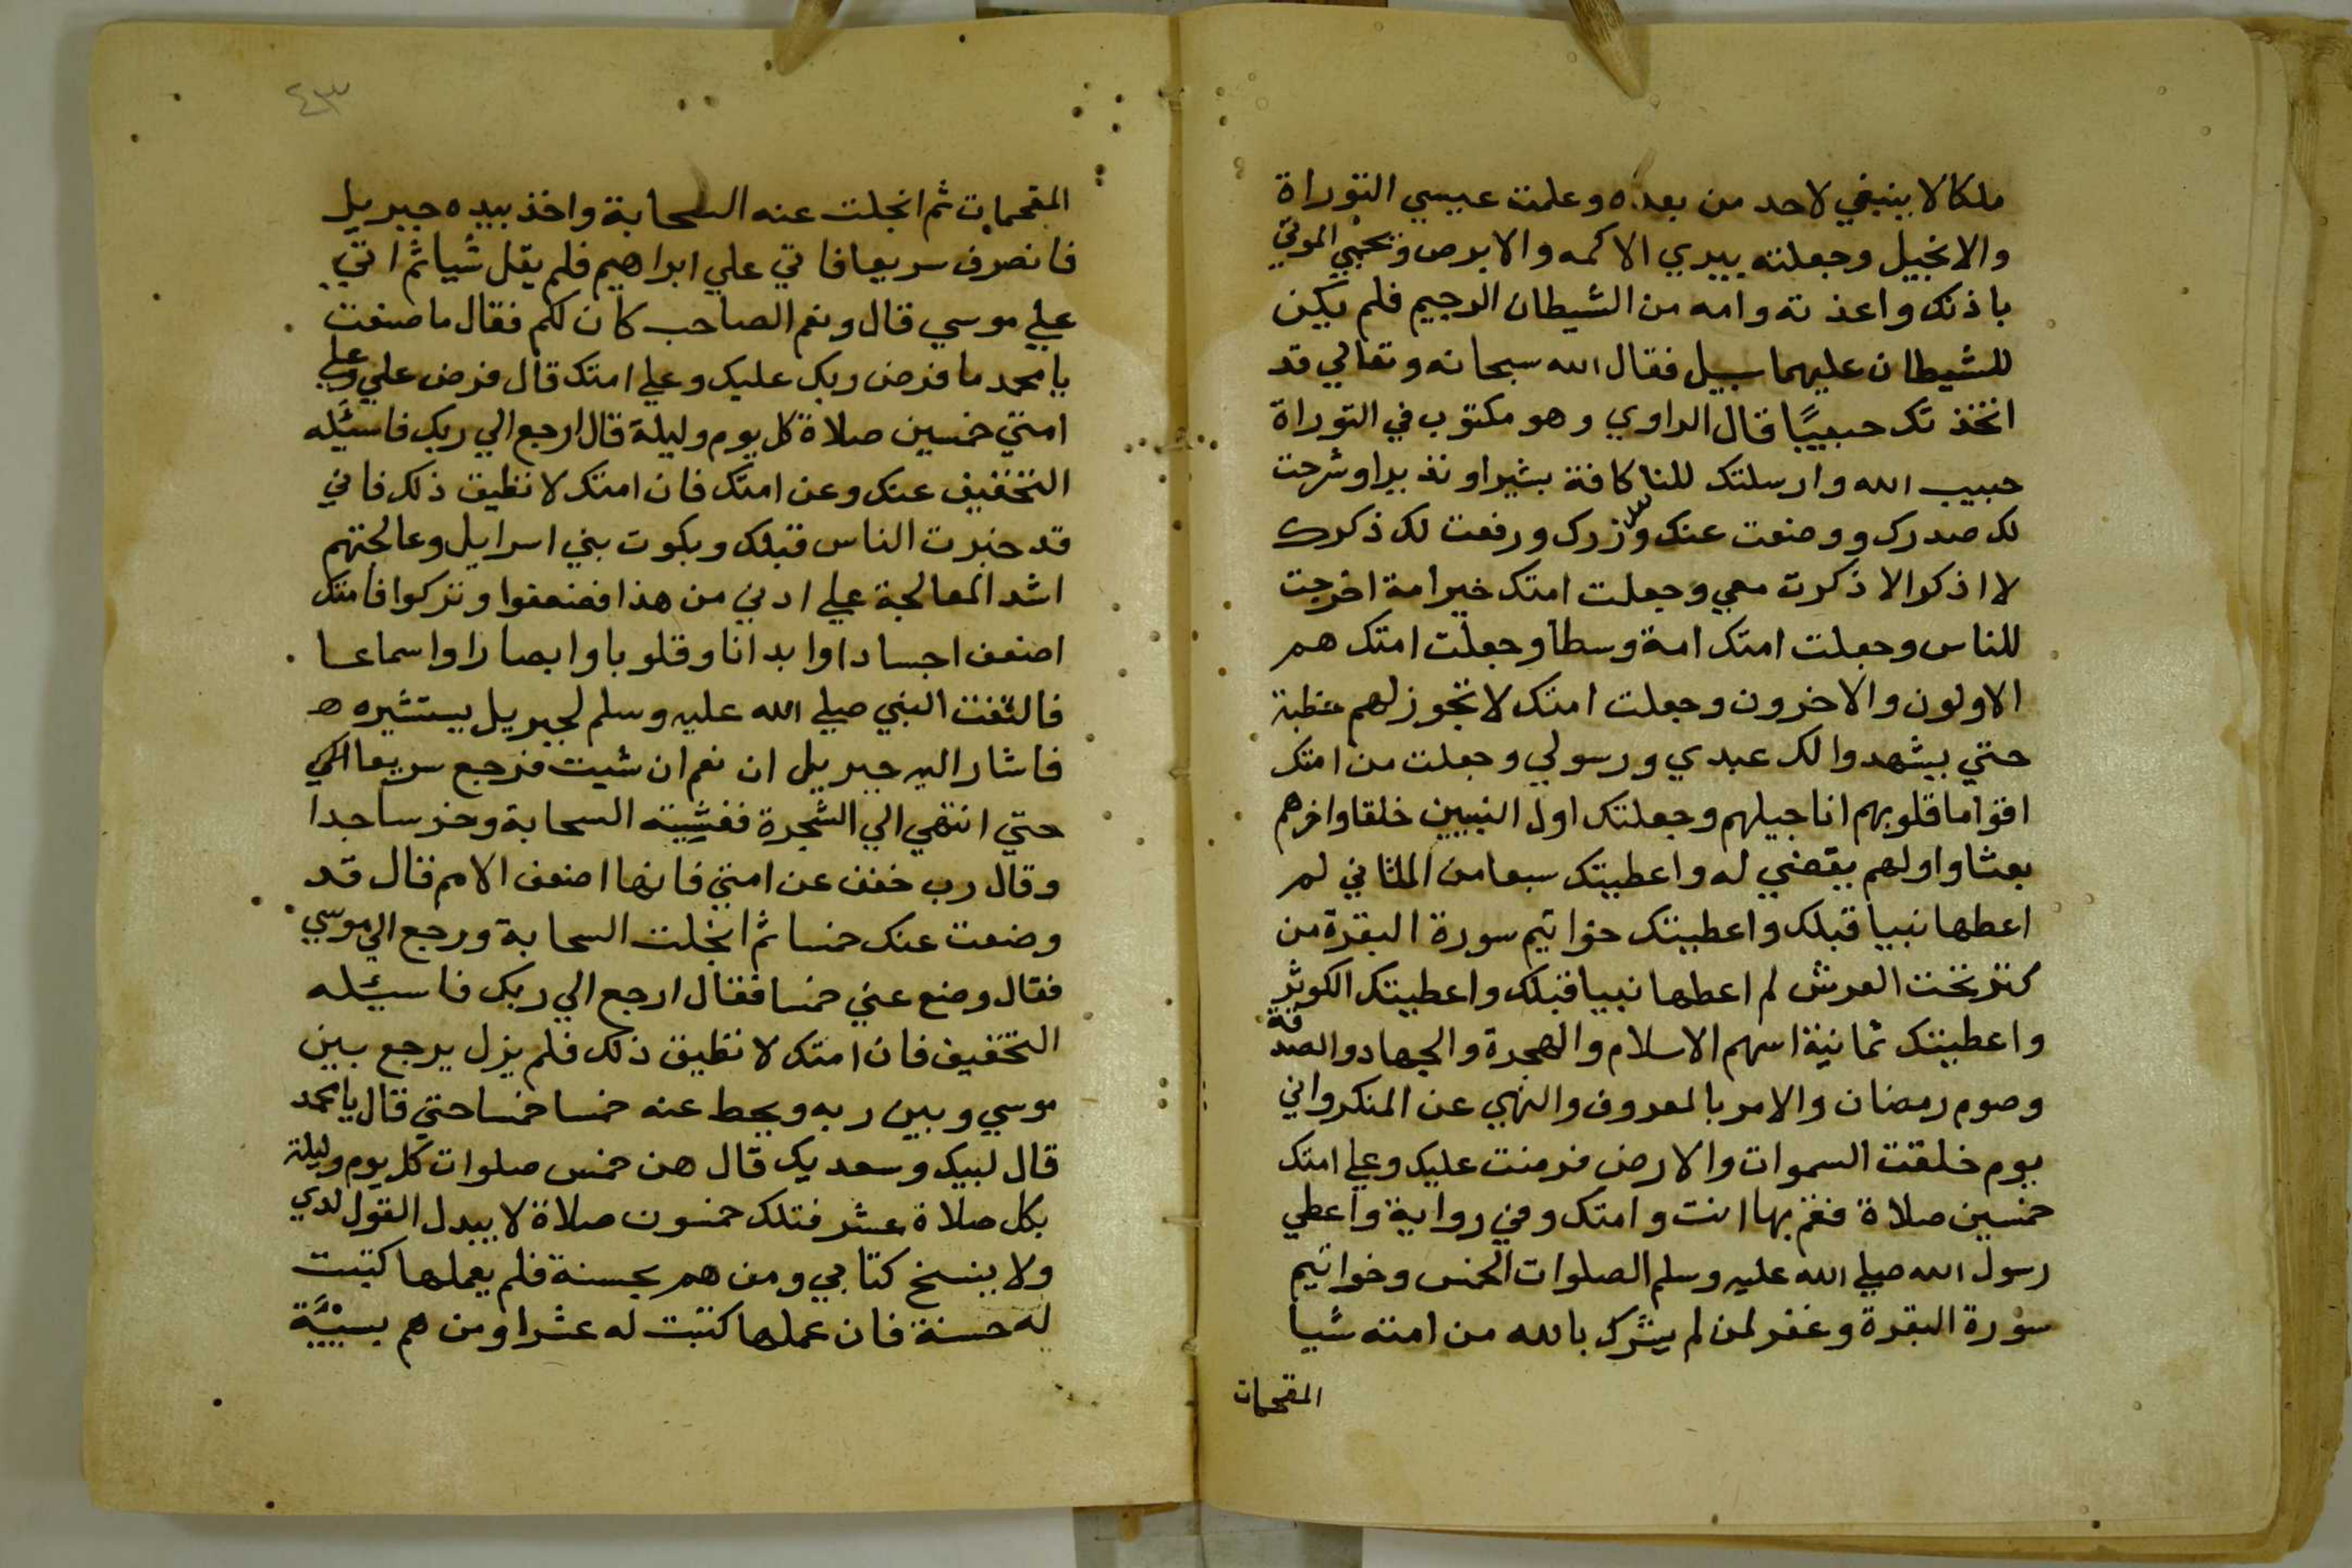 ملكا لا ينبغي لاحد من بعده وعلمت عيسي التوراة
والانجيل وجعلته يبري الاكمه والابرص ويحيي الموتي
باذنك واعذته وامه من الشيطان الرجيم فلم يكن
للشيطان عليهما سبيل فقال الله سبحانه وتعالي قد
اتخذتك حبيبًا قال الراوي وهو مكتوب في التوراة
حبيب الله وارسلتك للناس كافة بشيرا ونذيرا وشرحت
لك صدرك ووضعت عنك وزرك ورفعت لك ذكرك
لا اذكر الا ذكرت معي وجعلت امتك خير امة اخرجت
للناس وجعلت امتك امة وسطا وجعلت امتك هم
الاولون والاخرون وجعلت امتك لا تجوز لهم خطبة
حتي يشهدوا لك عبدي ورسولي وجعلت من امتك
اقواما قلوبهم اناجيلهم وجعلتك اول النبيين خلقا واخرهم
بعثا واولهم يقضي له واعطيتك سبعا من المثاني لم
اعطها نبيا قبلك واعطيتك خواتيم سورة البقرة من
كنز تحت العرش لم اعطها نبيا قبلك واعطيتك الكوثر
واعطيتك ثمانية اسهم الاسلام والهجرة والجهاد والصدقة
وصوم رمضان والامر بالمعروف والنهي عن المنكر واني
يوم خلقت السموات والارض فرضت عليك وعلي امتك
خمسين صلاة فقم بها انت وامتك وفي رواية واعطي
رسول الله صلي الله عليه وسلم الصلوات الخمس وخواتيم
سورة البقرة وغفر لمن لم يشرك بالله من امته شيا
المقحمات
٤٣
المقحمات ثم انجلت عنه السحابة واخذ بيده جبريل
فانصرف سريعا فاتي علي ابراهيم فلم يقل شيا ثم اتي
علي موسي قال ونعم الصاحب كان لكم فقال ما صنعت
يا محمد ما فرض ربك عليك وعلي امتك قال فرض علي وعلي
امتي خمسين صلاة كل يوم وليلة قال ارجع الي ربك فاسئله
التخفيف عنك وعن امتك فان امتك لا تطيق ذلك فاني
قد خبرت الناس قبلك وبلوت بني اسرايل وعالجتهم
اشد المعالجة علي ادني من هذا فضعفوا وتركوا فامتك
اضعف اجسادا وابدانا وقلوبا وابصارا واسماعا
فالتفت النبي صلي الله عليه وسلم لجبريل يستشيره ه
فاشار اليه جبريل ان نعم ان شيت فرجع سريعا الي
حتي انتهي الي الشجرة فغشيته السحابة وخر ساجدا
وقال رب خفف عن امتي فانها اضعف الامم قال قد
وضعت عنك خمسا ثم انجلت السحابة ورجع الي موسي
فقال وضع عني خمسا فقال ارجع الي ربك فاسئله
التخفيف فان امتك لا تطيق ذلك فلم يزل يرجع بين
موسي وبين ربه ويحط عنه خمسا خمسا حتي قال يا محمد
قال لبيك وسعديك قال هن خمس صلوات كل يوم وليلة
بكل صلاة عشر فتلك خمسون صلاة لا يبدل القول لدي
ولا ينسخ كتابي ومن هم بحسنة فلم يعملها كتبت
له حسنة فان عملها كتبت له عشرا ومن هم بسيئة